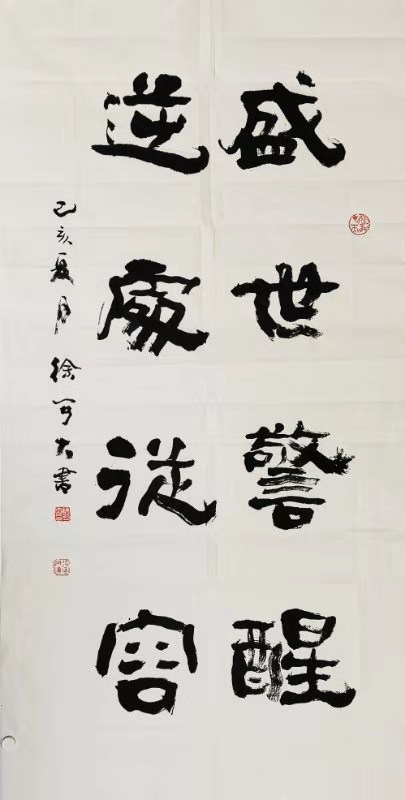 盛世警醒
逆處從容
己亥夏月徐可大書